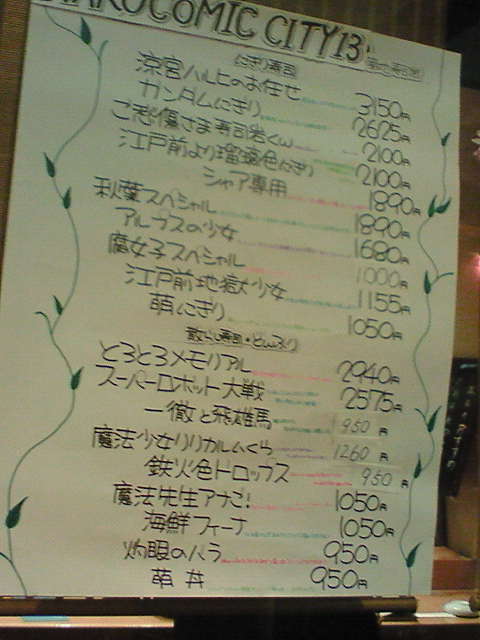 HAROCOMIC CITY13
にぎり寿司
涼宮ハルヒのお任せ 3150円
ガンダムにぎり 2625円
ご愁傷さま寿司岩くん 2100円
江戸前より瑠璃色にぎり 2100円
シャア専用 1890円
秋葉スペシャル 1890円
アルプスの少女 1680円
腐女子スペシャル 1000円
江戸前地獄少女 1155円
萌にぎり 1050円
散らし寿司・どんぶり
とろとろメモリアル 2940円
スーパーロボット大戦 2575円
一徹と飛雄馬 950円
魔法少女リリカルいくら 1260円
鉄火色ドロップス 950円
魔法先生アナご! 1050円
海鮮フィーナ 1050円
灼眼のバラ 950円
萌丼 950円